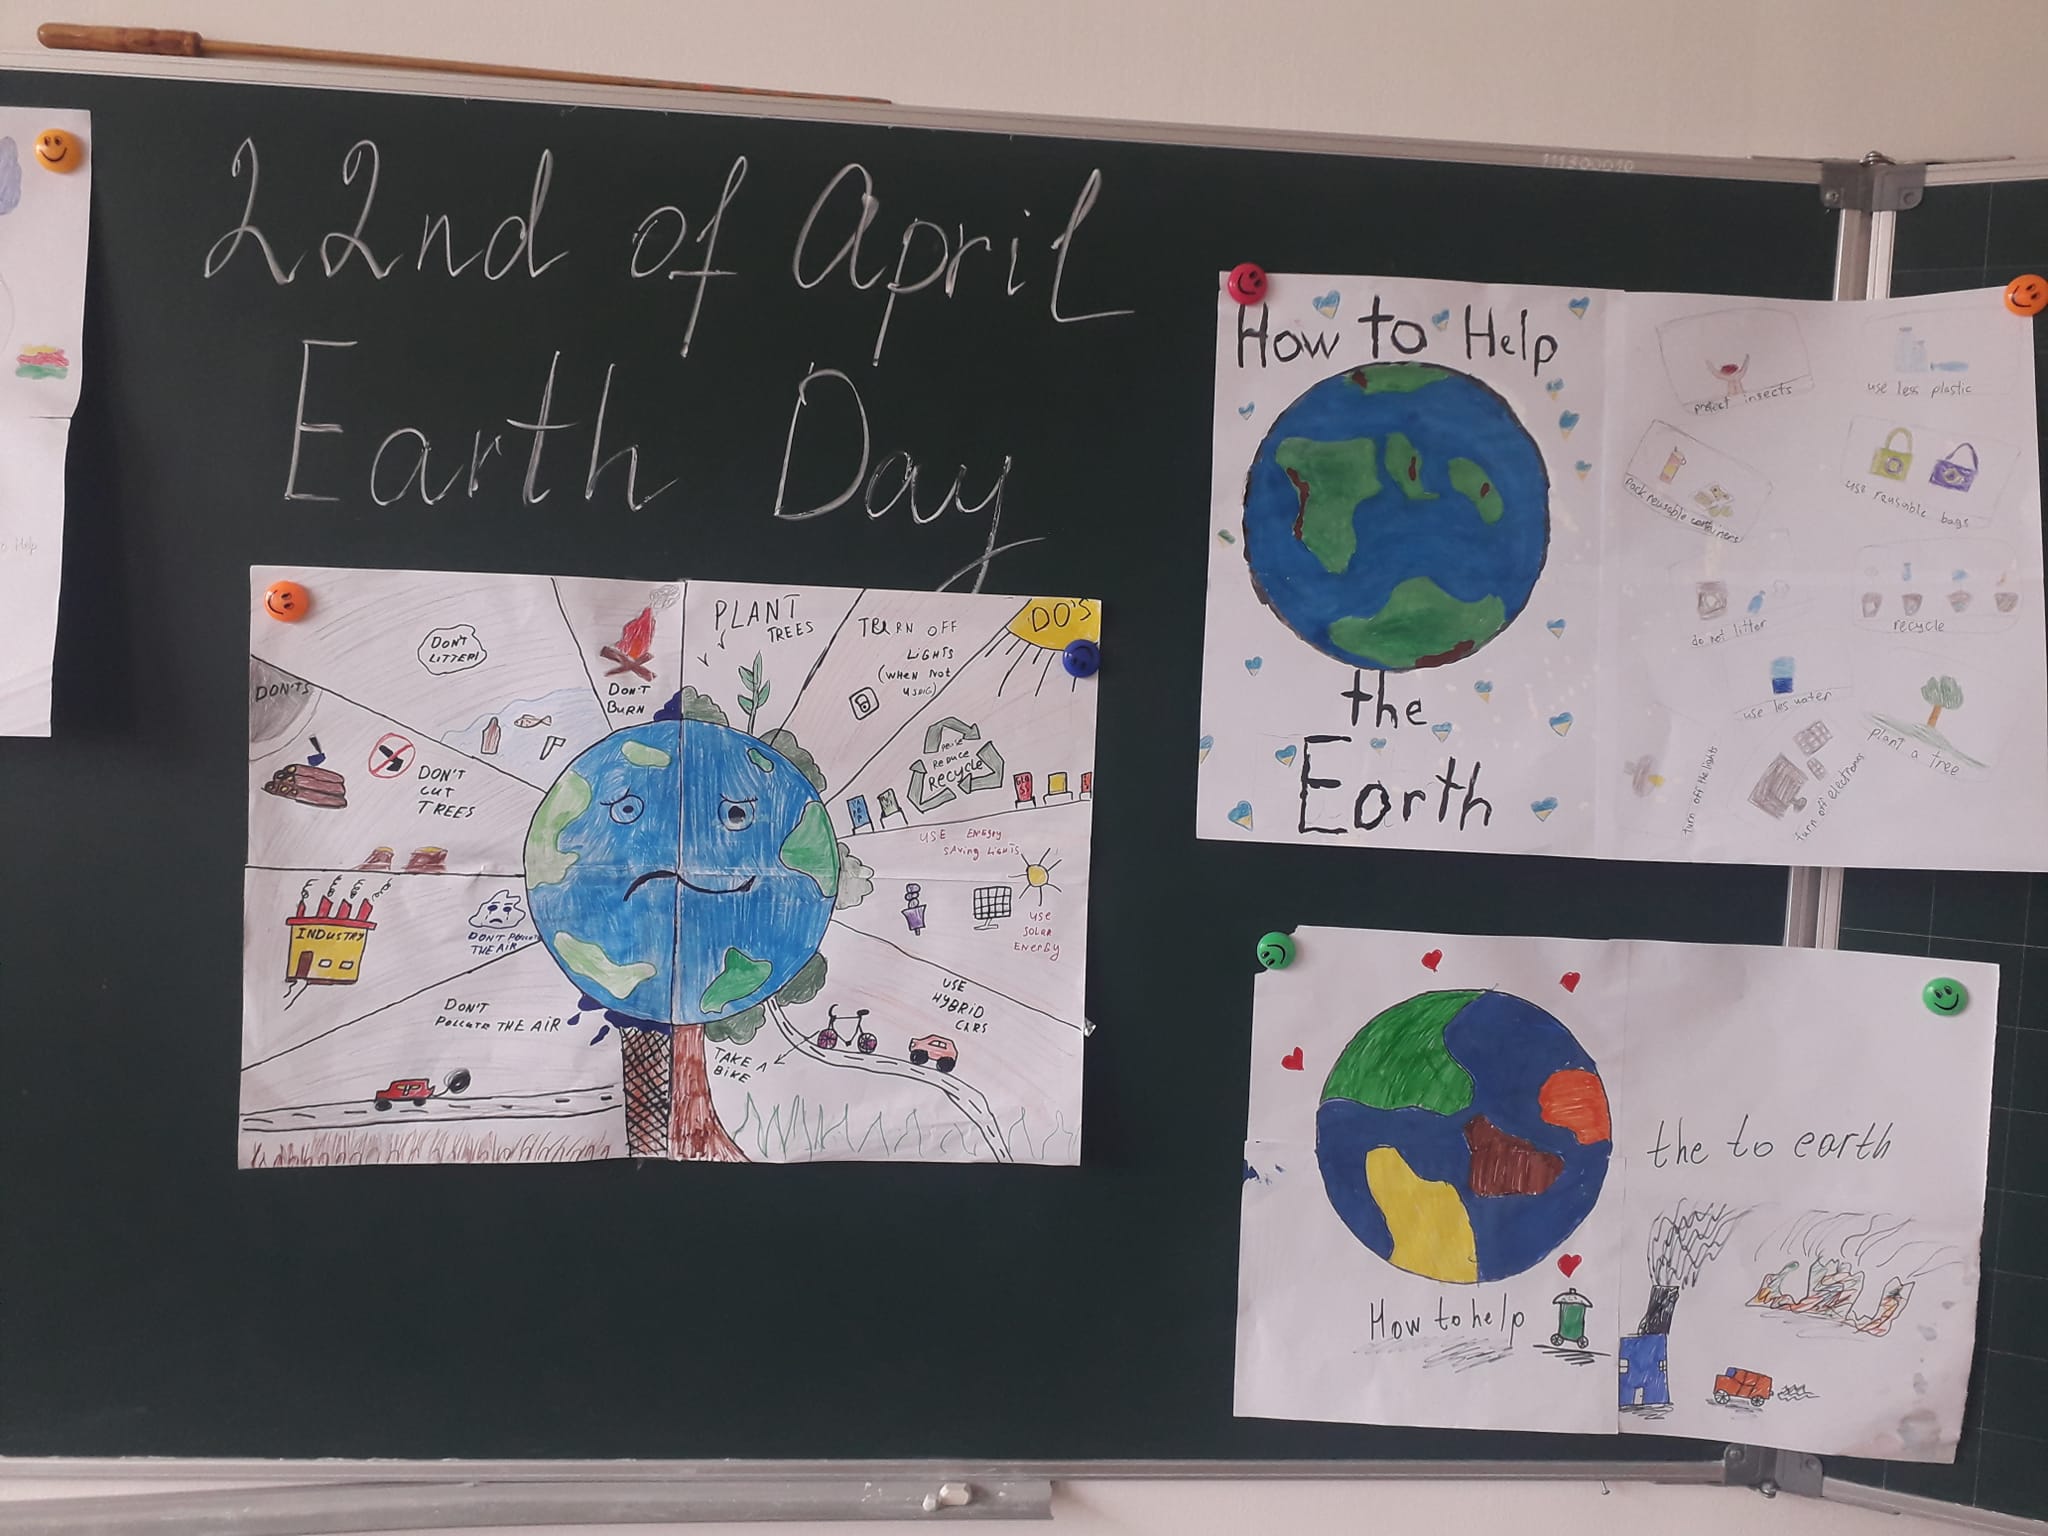 22nd of April
Earth Day
111300010
o Help
DON'TS
DON'T
LITTER!
DON'T
BURN
DON'T
CUT
TREES
INDUSTRY
DON'T POLLUTE
THE AIR
DON'T
POLLUTE THE AIR
PLANT
TREES
TURN OFF
LIGHTS
(WHEN NOT
USING)
DO'S
REUSE
REDUCE
RECYCLE
USE ENERGY
SAVING LIGHTS
USE
SOLAR
ENERGY
USE
HYBRID
CARS
TAKE A
BIKE
How to Help
the
Earth
protect insects
use less plastic
pack reusable containers
use reusable bags
do not litter
recycle
use les water
plant a tree
turn off the lights
turn off electronics
How to help
the to earth